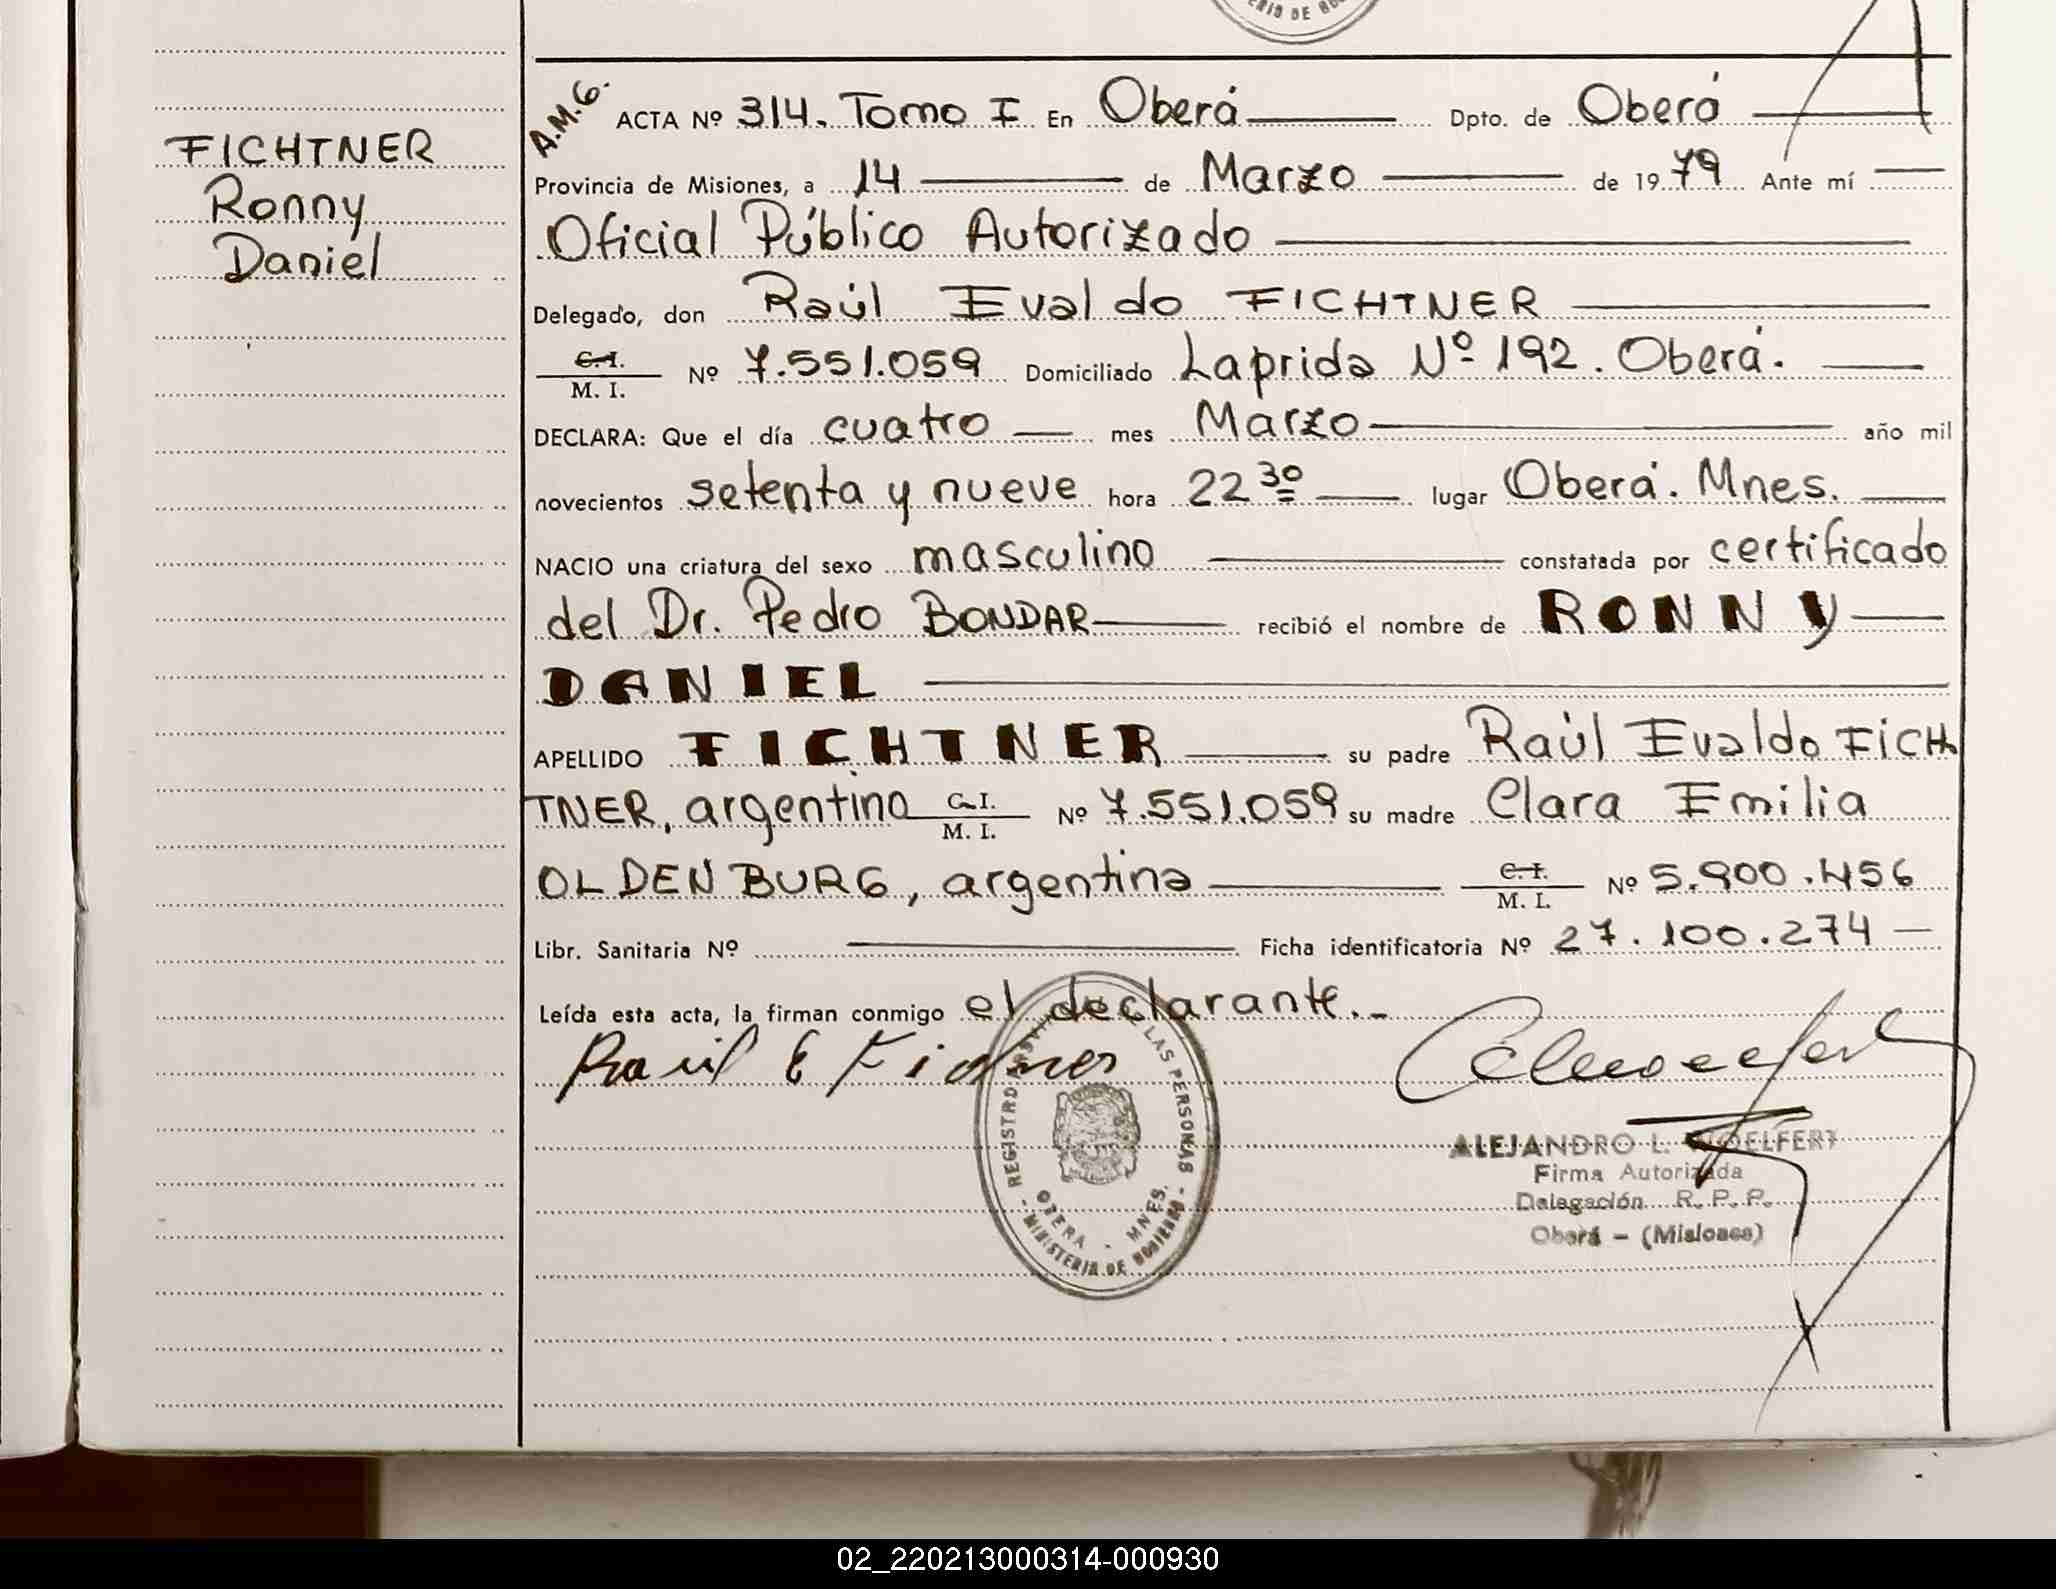 ERIO DE
FICHTNER
Ronny
Daniel
A.M.G.
ACTA Nº 314. Tomo I En Oberá Dpto. de Oberá
Provincia de Misiones, a 14 de Marzo de 1979 Ante mí
Oficial Público Autorizado
Delegado, don Raúl Evaldo FICHTNER
C.I.
M. I. Nº 7.551.059 Domiciliado Laprida Nº 192. Oberá.
DECLARA: Que el día cuatro mes Marzo año mil
novecientos setenta y nueve hora 22 30 lugar Oberá. Mnes.
NACIO una criatura del sexo masculino constatada por certificado
del Dr. Pedro BONDAR recibió el nombre de RONNY
DANIEL
APELLIDO FICHTNER su padre Raúl Evaldo FICH
TNER, argentino C.I. M. I. Nº 7.551.059 su madre Clara Emilia
OLDENBURG, argentina C.I. M. I. Nº 5.900.456
Libr. Sanitaria Nº Ficha identificatoria Nº 27.100.274
Leída esta acta, la firman conmigo el declarante.
Raúl E Fichtner
REGISTRO LAS PERSONAS
OBERA - MNES.
- MINISTERIO DE GOBIERNO -
ALEJANDRO L. WOELFERT
Firma Autorizada
Delegación R. P. P.
Oberá - (Misiones)
02_220213000314-000930